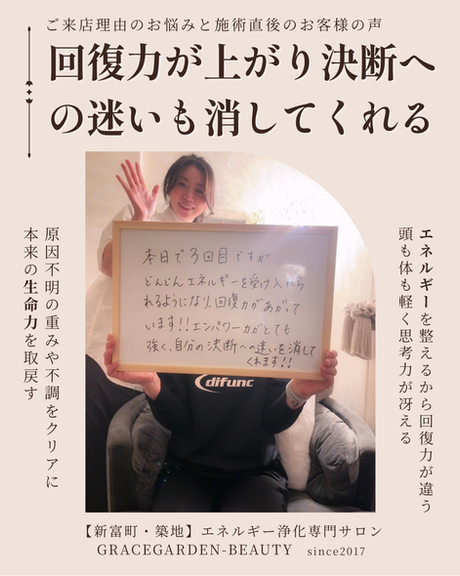 ご来店理由のお悩みと施術直後のお客様の声
回復力が上がり決断へ
の迷いも消してくれる
エネルギーを整えるから回復力が違う
頭も体も軽く思考力が冴える
本日で3回目ですが
どんどんエネルギーを受け入れら
れるようになり、回復力があがって
います!!エンパワー力がとても
強く、自分の決断への迷いを消して
くれます!!
difunc
原因不明の重みや不調をクリアに
本来の生命力を取戻す
【新富町・築地】エネルギー浄化専門サロン
GRACEGARDEN-BEAUTY since2017